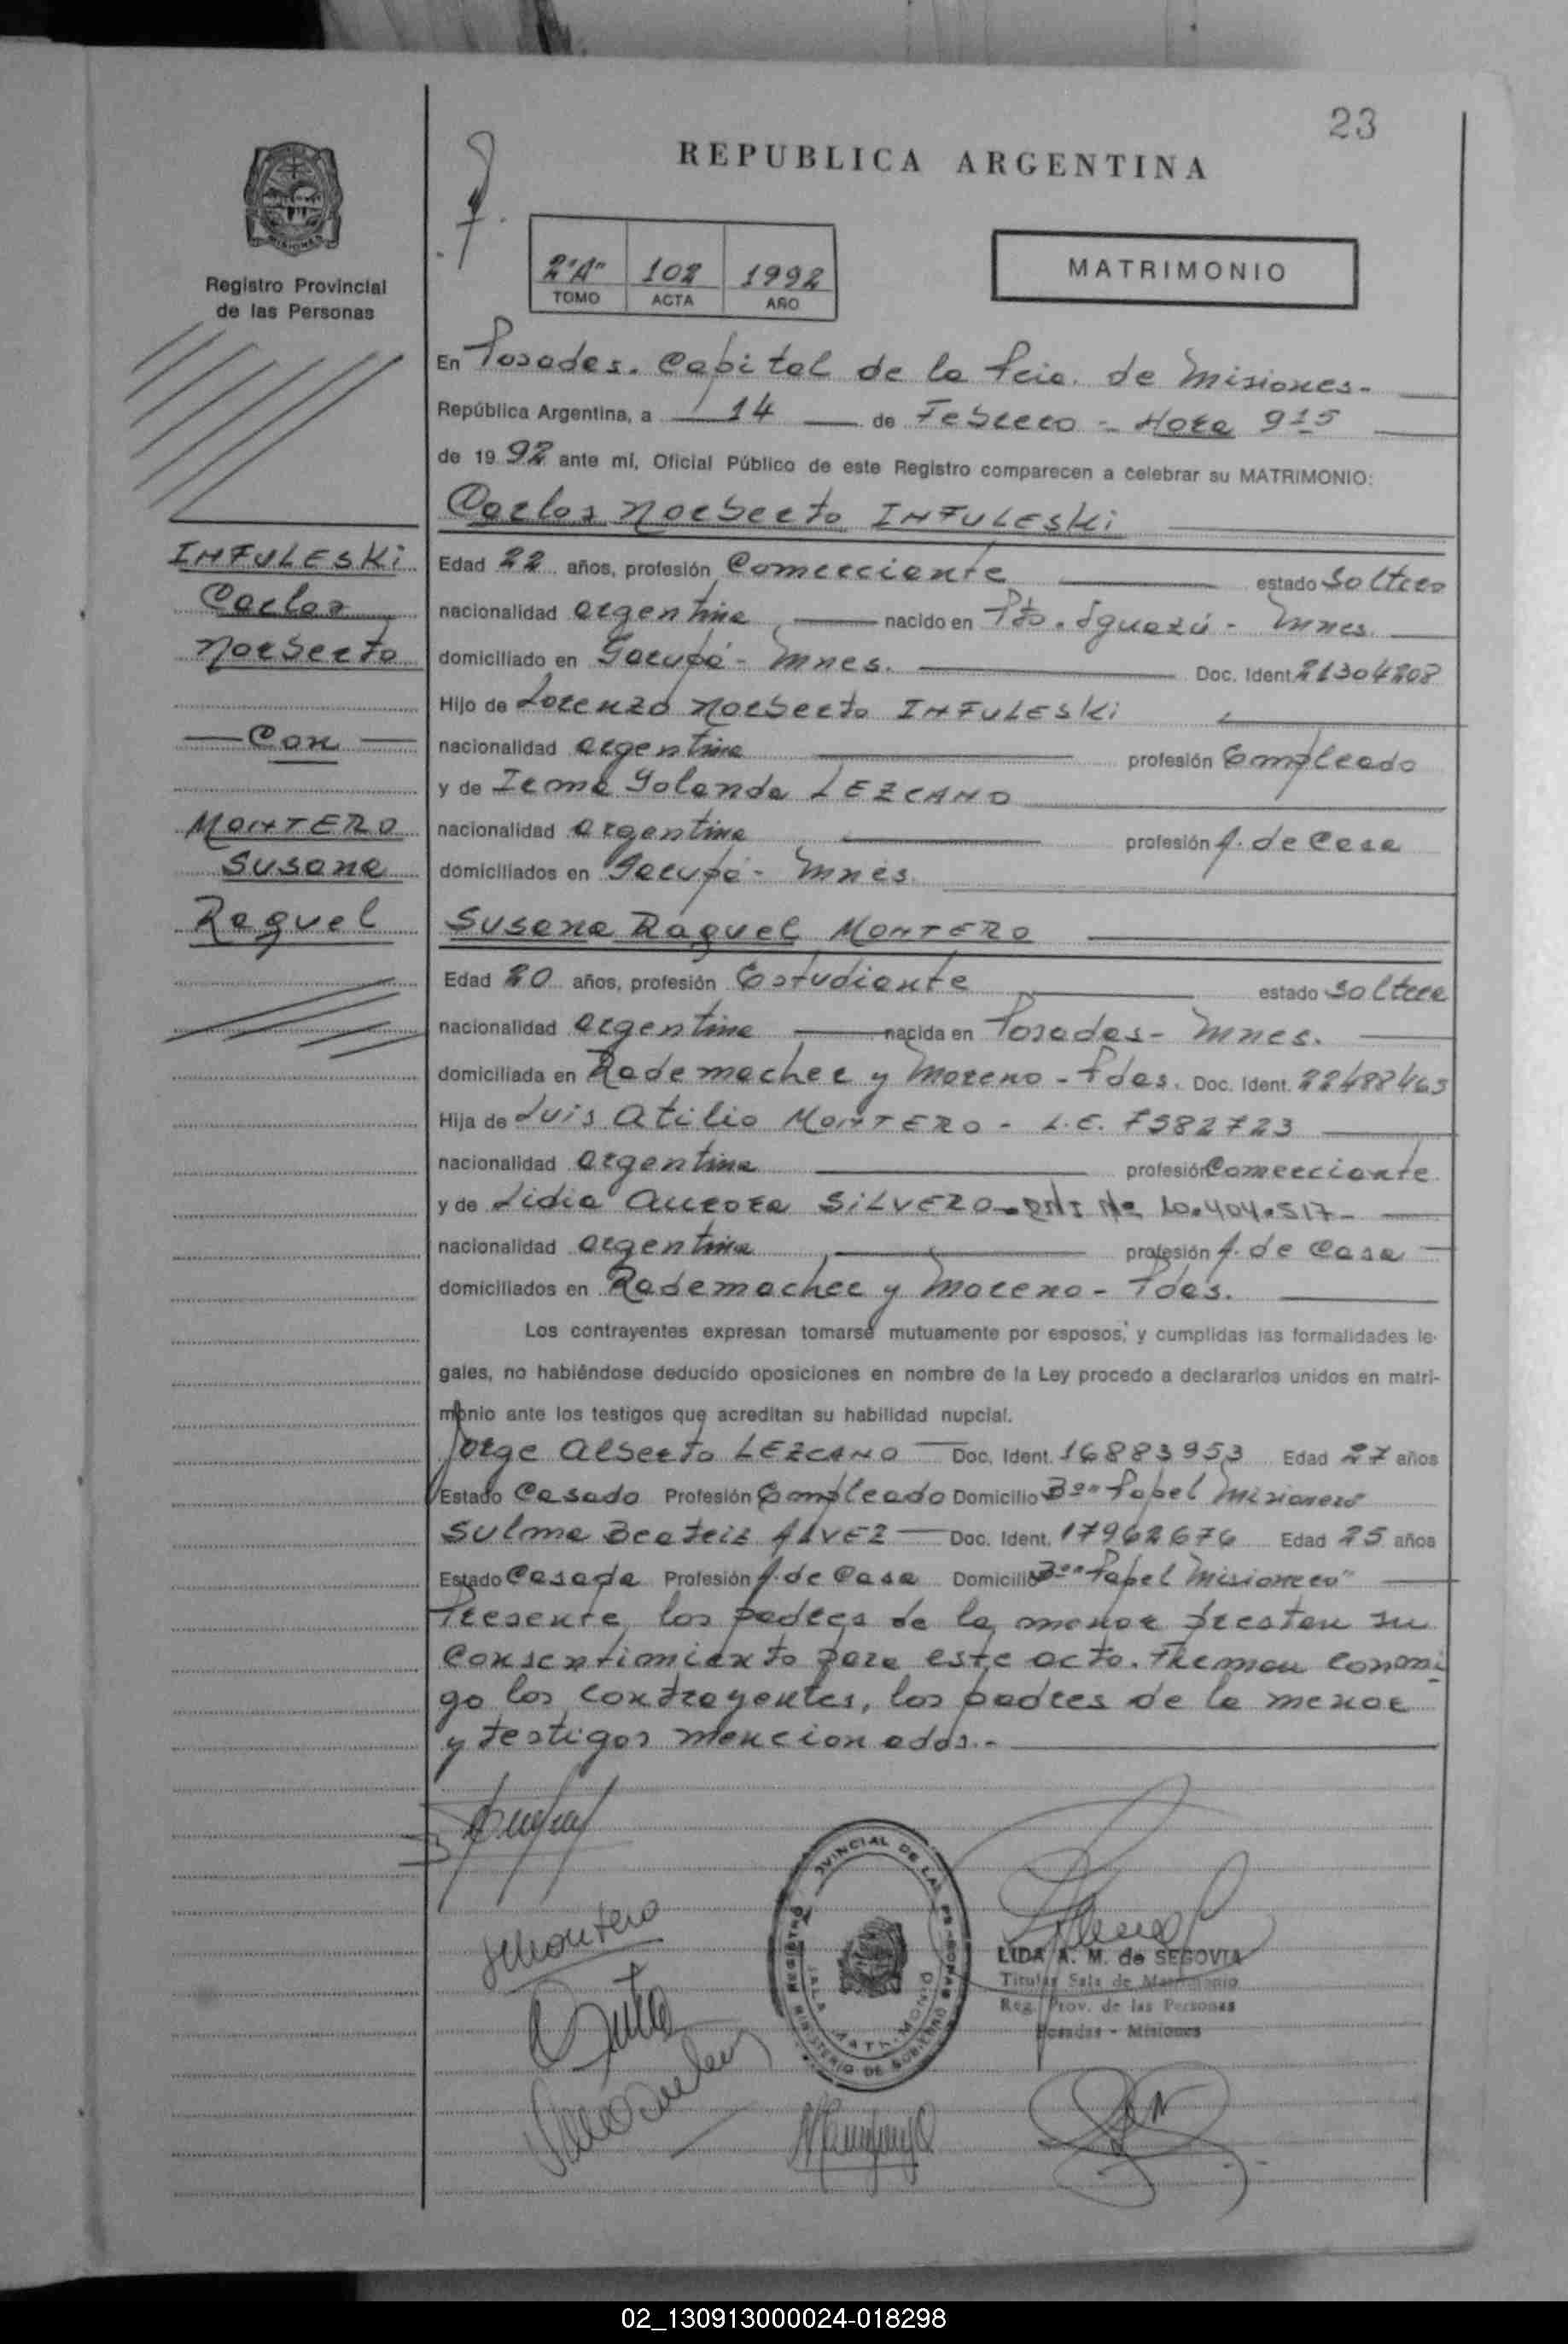 23
REPUBLICA ARGENTINA
MISIONES
Registro Provincial
de las Personas
2"A" 102 1992
TOMO ACTA AÑO
MATRIMONIO
En Posadas. Capital de la Pcia. de Misiones-
República Argentina, a 14 de Febrero - Hora 9 15
de 1992 ante mí, Oficial Público de este Registro comparecen a celebrar su MATRIMONIO:
Carlos Norberto INFULESKi
INFULESKi
Carlos
Norberto
Con
MONTERO
Susana
Raquel
Edad 22 años, profesión Comerciante estado Soltero
nacionalidad argentina nacido en Pto. Iguazú - Mnes.
domiciliado en Garupá - Mnes. Doc. Ident. 21304208
Hijo de Lorenzo Norberto INFULESKi
nacionalidad argentina profesión Empleado
y de Irma Yolanda LEZCANO
nacionalidad argentina profesión A. de Casa
domiciliados en Garupá - Mnes.
Susana Raquel MONTERO
Edad 20 años, profesión Estudiante estado Soltera
nacionalidad argentina nacida en Posadas - Mnes.
domiciliada en Rademacher y Moreno - Pdas. Doc. Ident. 22488463
Hija de Luis Atilio MONTERO - L.E. 7582723
nacionalidad argentina profesión Comerciante
y de Lidia Aurora SiLVERO - DNI Nº 10.404.517-
nacionalidad argentina profesión A. de Casa
domiciliados en Rademacher y Moreno - Pdas.
Los contrayentes expresan tomarse mutuamente por esposos, y cumplidas las formalidades le-
gales, no habiéndose deducido oposiciones en nombre de la Ley procedo a declararlos unidos en matri-
monio ante los testigos que acreditan su habilidad nupcial.
Jorge Alberto LEZCANO Doc. Ident. 16883953 Edad 27 años
Estado Casado Profesión Empleado Domicilio Bº "Papel Misionero"
Sulma Beatriz ALVEZ Doc. Ident. 17962676 Edad 25 años
Estado Casada Profesión A. de Casa Domicilio Bº "Papel Misionero"
Presente los padres de la menor prestan su
Consentimiento para este acto. Firman conmi
go los contrayentes, los padres de la menor
y testigos mencionados.-
SMontero
REGISTRO PROVINCIAL DE LAS PERSONAS
MINISTERIO DE GOBIERNO
SALA MATRIMONIO
LIDA A. M. de SEGOVIA
Titular Sala de Matrimonio
Reg. Prov. de las Personas
Posadas - Misiones
02_130913000024-018298